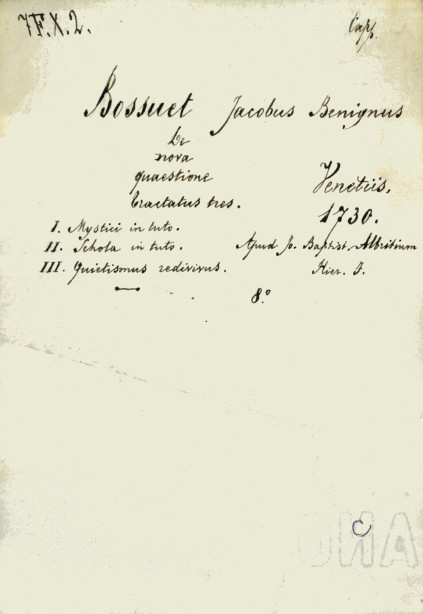 7F.X.2.
Caps.
Bossuet Jacobus Benignus
De
nova
quaestione
tractatus tres.
I. Mystici in tuto.
II. Schola in tuto.
III. Quietismus redivivus.
Venetiis,
1730.
Apud Jo. Baptist. Albritium
Hier. F.
8.°
C